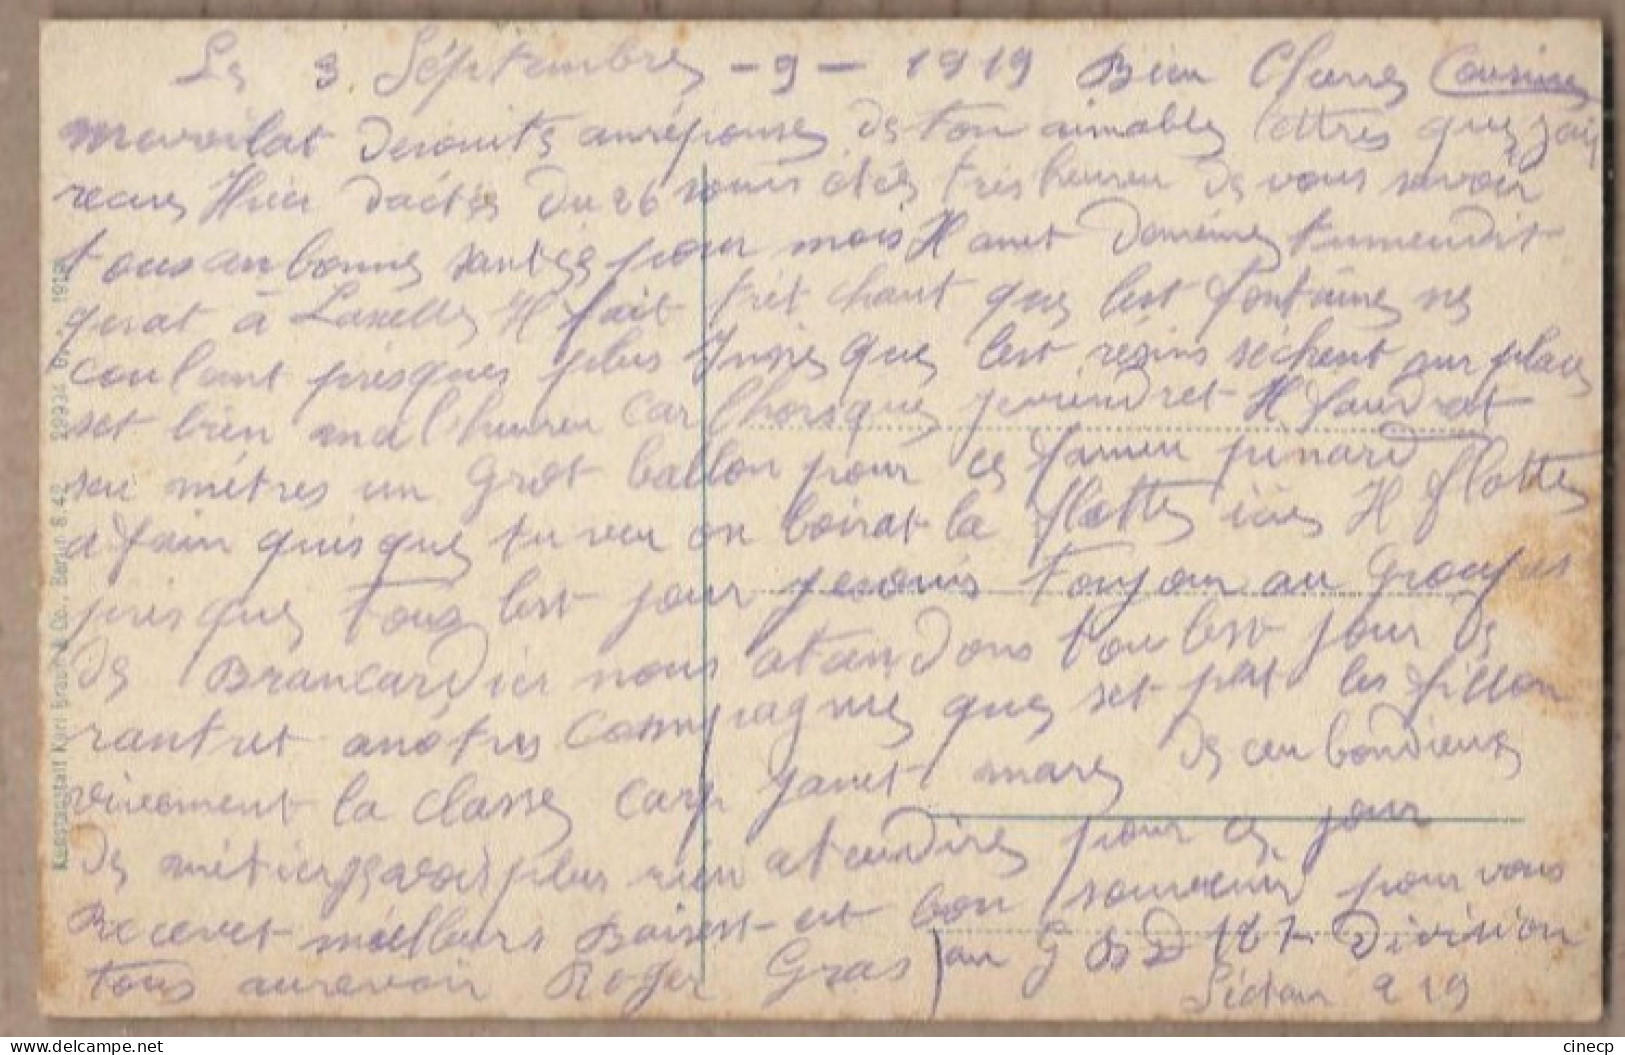 Le 3 Séptembre - 9 - 1919 Bien Cherre Cousine
mevoilat desouite anréponse de ton aimable lettres que jai
recus Hier daetés du 26 suuis étés tres heureu de vous savoir
tous an bonne santés pour mois H anet deméme tumeudit
qesat à Laselle H fait trêt chaut que lest fontaine ne
coulant présque plus Insie que lest résins séchent sur place
set bien malheureu car lhorsque jeviendret H faudrat
seu métres un grot ballon pour ce fameu pinard
afain quisque tu veu on boirat la flotte isies H flotte
presque tous lest jour jesuis toujour au Groupes
de Brancardier nous atandons tou lest jour de
rantret anotres Compagnie que set plat les fillon
vivement la classe car janet mare de ceu bondieux
de métier jevoit plus rien atendire pour ce jour
Recevet meilleurs Baisest et bon souvenir pour vous
tous aurevoir Roger Gras au G B D 127 Division
Sédan 9 19
Kunstanstalt Karl Braun & Co., Berlin S. 42 29934 1918
cinecp